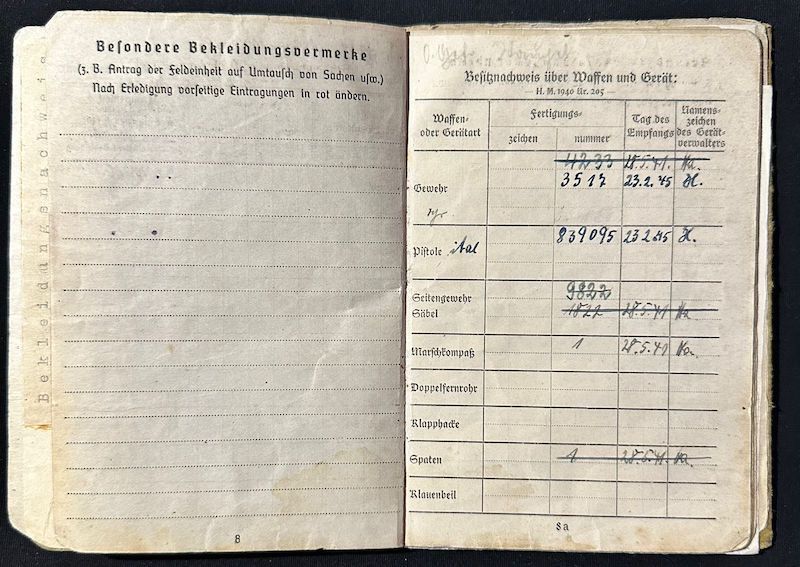 Bekleidungsnachweis
Besondere Bekleidungsvermerke
(z. B. Antrag der Feldeinheit auf Umtausch von Sachen usw.)
Nach Erledigung vorseitige Eintragungen in rot ändern.
8
Besitznachweis über Waffen und Gerät:
— H. M. 1940 Nr. 205 —
Waffen- oder Geräteart
Fertigungs-
zeichen
nummer
Tag des Empfangs
Namens- zeichen des Gerät- verwalters
4233 28.5.41. Ka.
Gewehr 3517 23.2.45 H.
Pistole ital 839095 23.2.45 H.
Seitengewehr 9822
Säbel 1822 28.5.41 Ka
Marschkompaß 1 28.5.41 Ka.
Doppelfernrohr
Klapphacke
Spaten 1 28.5.41. Ka.
Klauenbeil
8a